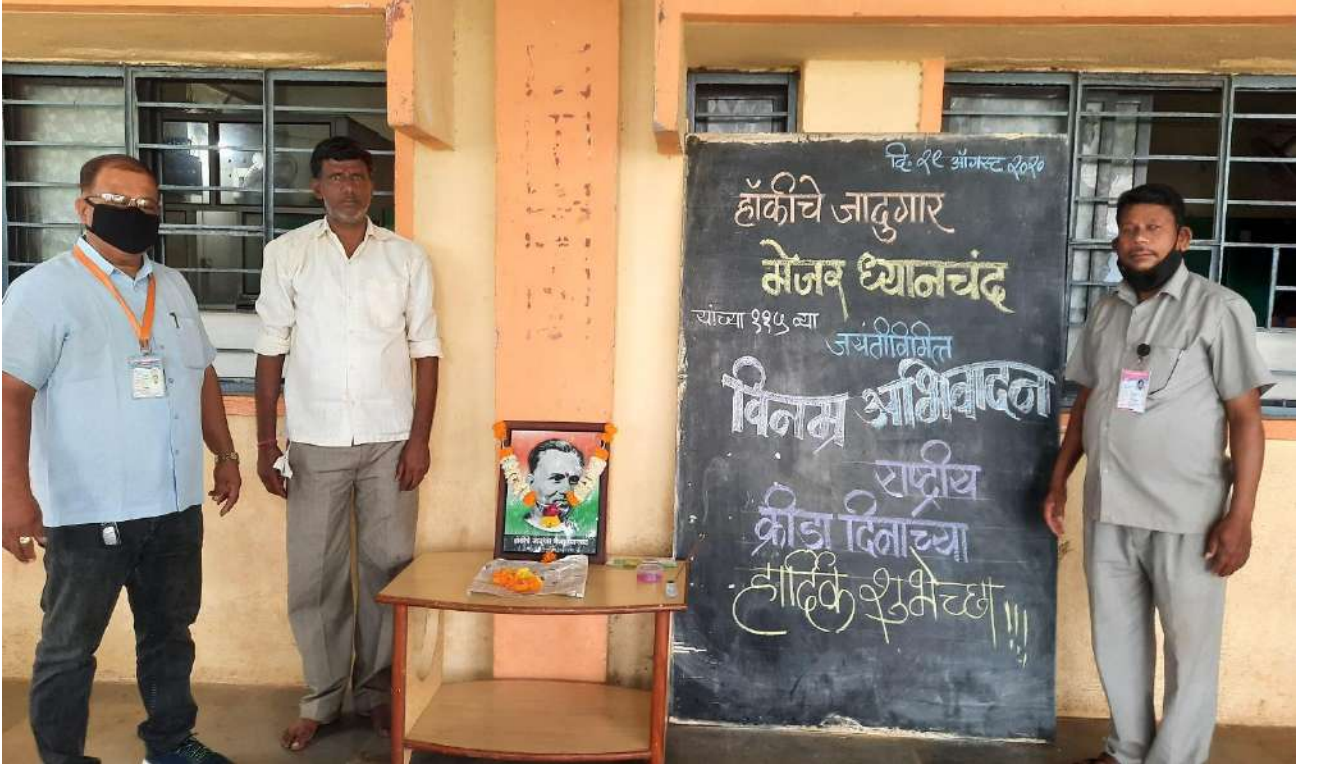 दि. २९ ऑगस्ट २०२०
हॉकीचे जादुगार
मेजर ध्यानचंद
यांच्या ११५ व्या
जयंतीनिमित्त
विनम्र अभिवादन
राष्ट्रीय
क्रीडा दिनाच्या
हार्दिक शुभेच्छा!!!
हॉकीचे जादुगार